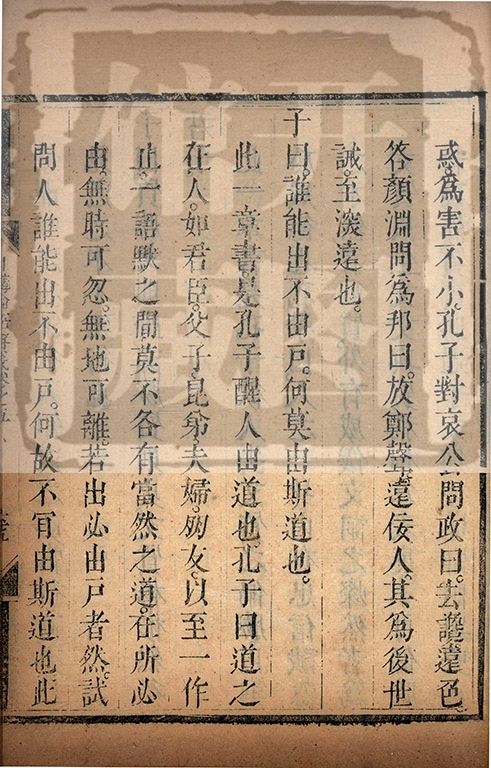 惑。為害不小。孔子對哀公問政曰。去讒遠色。
答顏淵問為邦曰。放鄭聲。遠佞人。其為後世
誡。至深遠也。
子曰。誰能出不由戶。何莫由斯道也。
此一章書是孔子醒人由道也。孔子曰道之
在人。如君臣。父子。昆弟。夫婦。朋友。以至一作
止。一語默之間莫不各有當然之道。在所必
由。無時可忽。無地可離。若出必由戶者然。試
問人誰能出不由戶。何故不肎由斯道也此